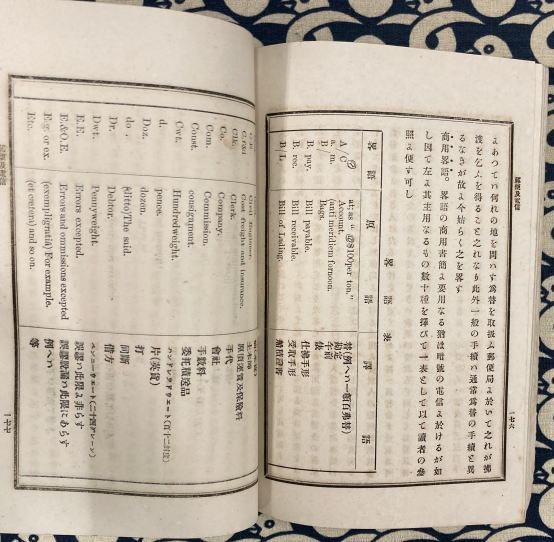 郵便及電信
一七六
よあつてハ何れの地を問ハず爲替を取扱ふ郵便局ニ於いて之れが拂
渡を乞ふを得ること之れなり此外一般の手續ハ通常爲替の手續と異
るなきが故ニ今姑らく之を畧す
商用畧語。畧語の商用書簡ニ要用なる猶ほ暗號の電信ニ於けるが如
し因て左ニ其主用なるもの數十種を擇びて一表として以て讀者の參
照ニ便す可し
畧語表
畧語 原語 譯語
@ at; as “@$100 per ton.” 替(例ヘハ一頓百弗替)
A/C Account. 勘定
a. m. (anti meridiem) fornoon. 午前
B/ Bags. 俵
B. pay. Bill payable. 仕拂手形
B. rec. Bill receivable. 受取手形
B/L. Bill of Lading. 船積證書
C.E. Civil Engineer.
C.f&i Cost freight and insurance. 原價運賃及保險料
Clk. Clerk. 手代
Co. Company. 會社
Com. Commission. 手數料
Const. consignment. 委托積送品
Cwt. Hundredweight. ハンドレッドウエート
d. pence. 片(英貨)
Doz. dozen. 打
do. (ditto) The said. 同斷
Dr. Debtor. 借方
Dwt. Pennyweight. ペンニーウエート(二十四グレーン)
E.E. Errors excepted. 誤謬ハ此限ニ非らず
E.&O.E. Errors and ommissions excepted 誤謬脫漏ハ此限にあらず
E.g. or ex. (exempligratiá) For example. 例ヘハ
Etc. (et cœtera) and so on. 等
郵便及電信
一七七